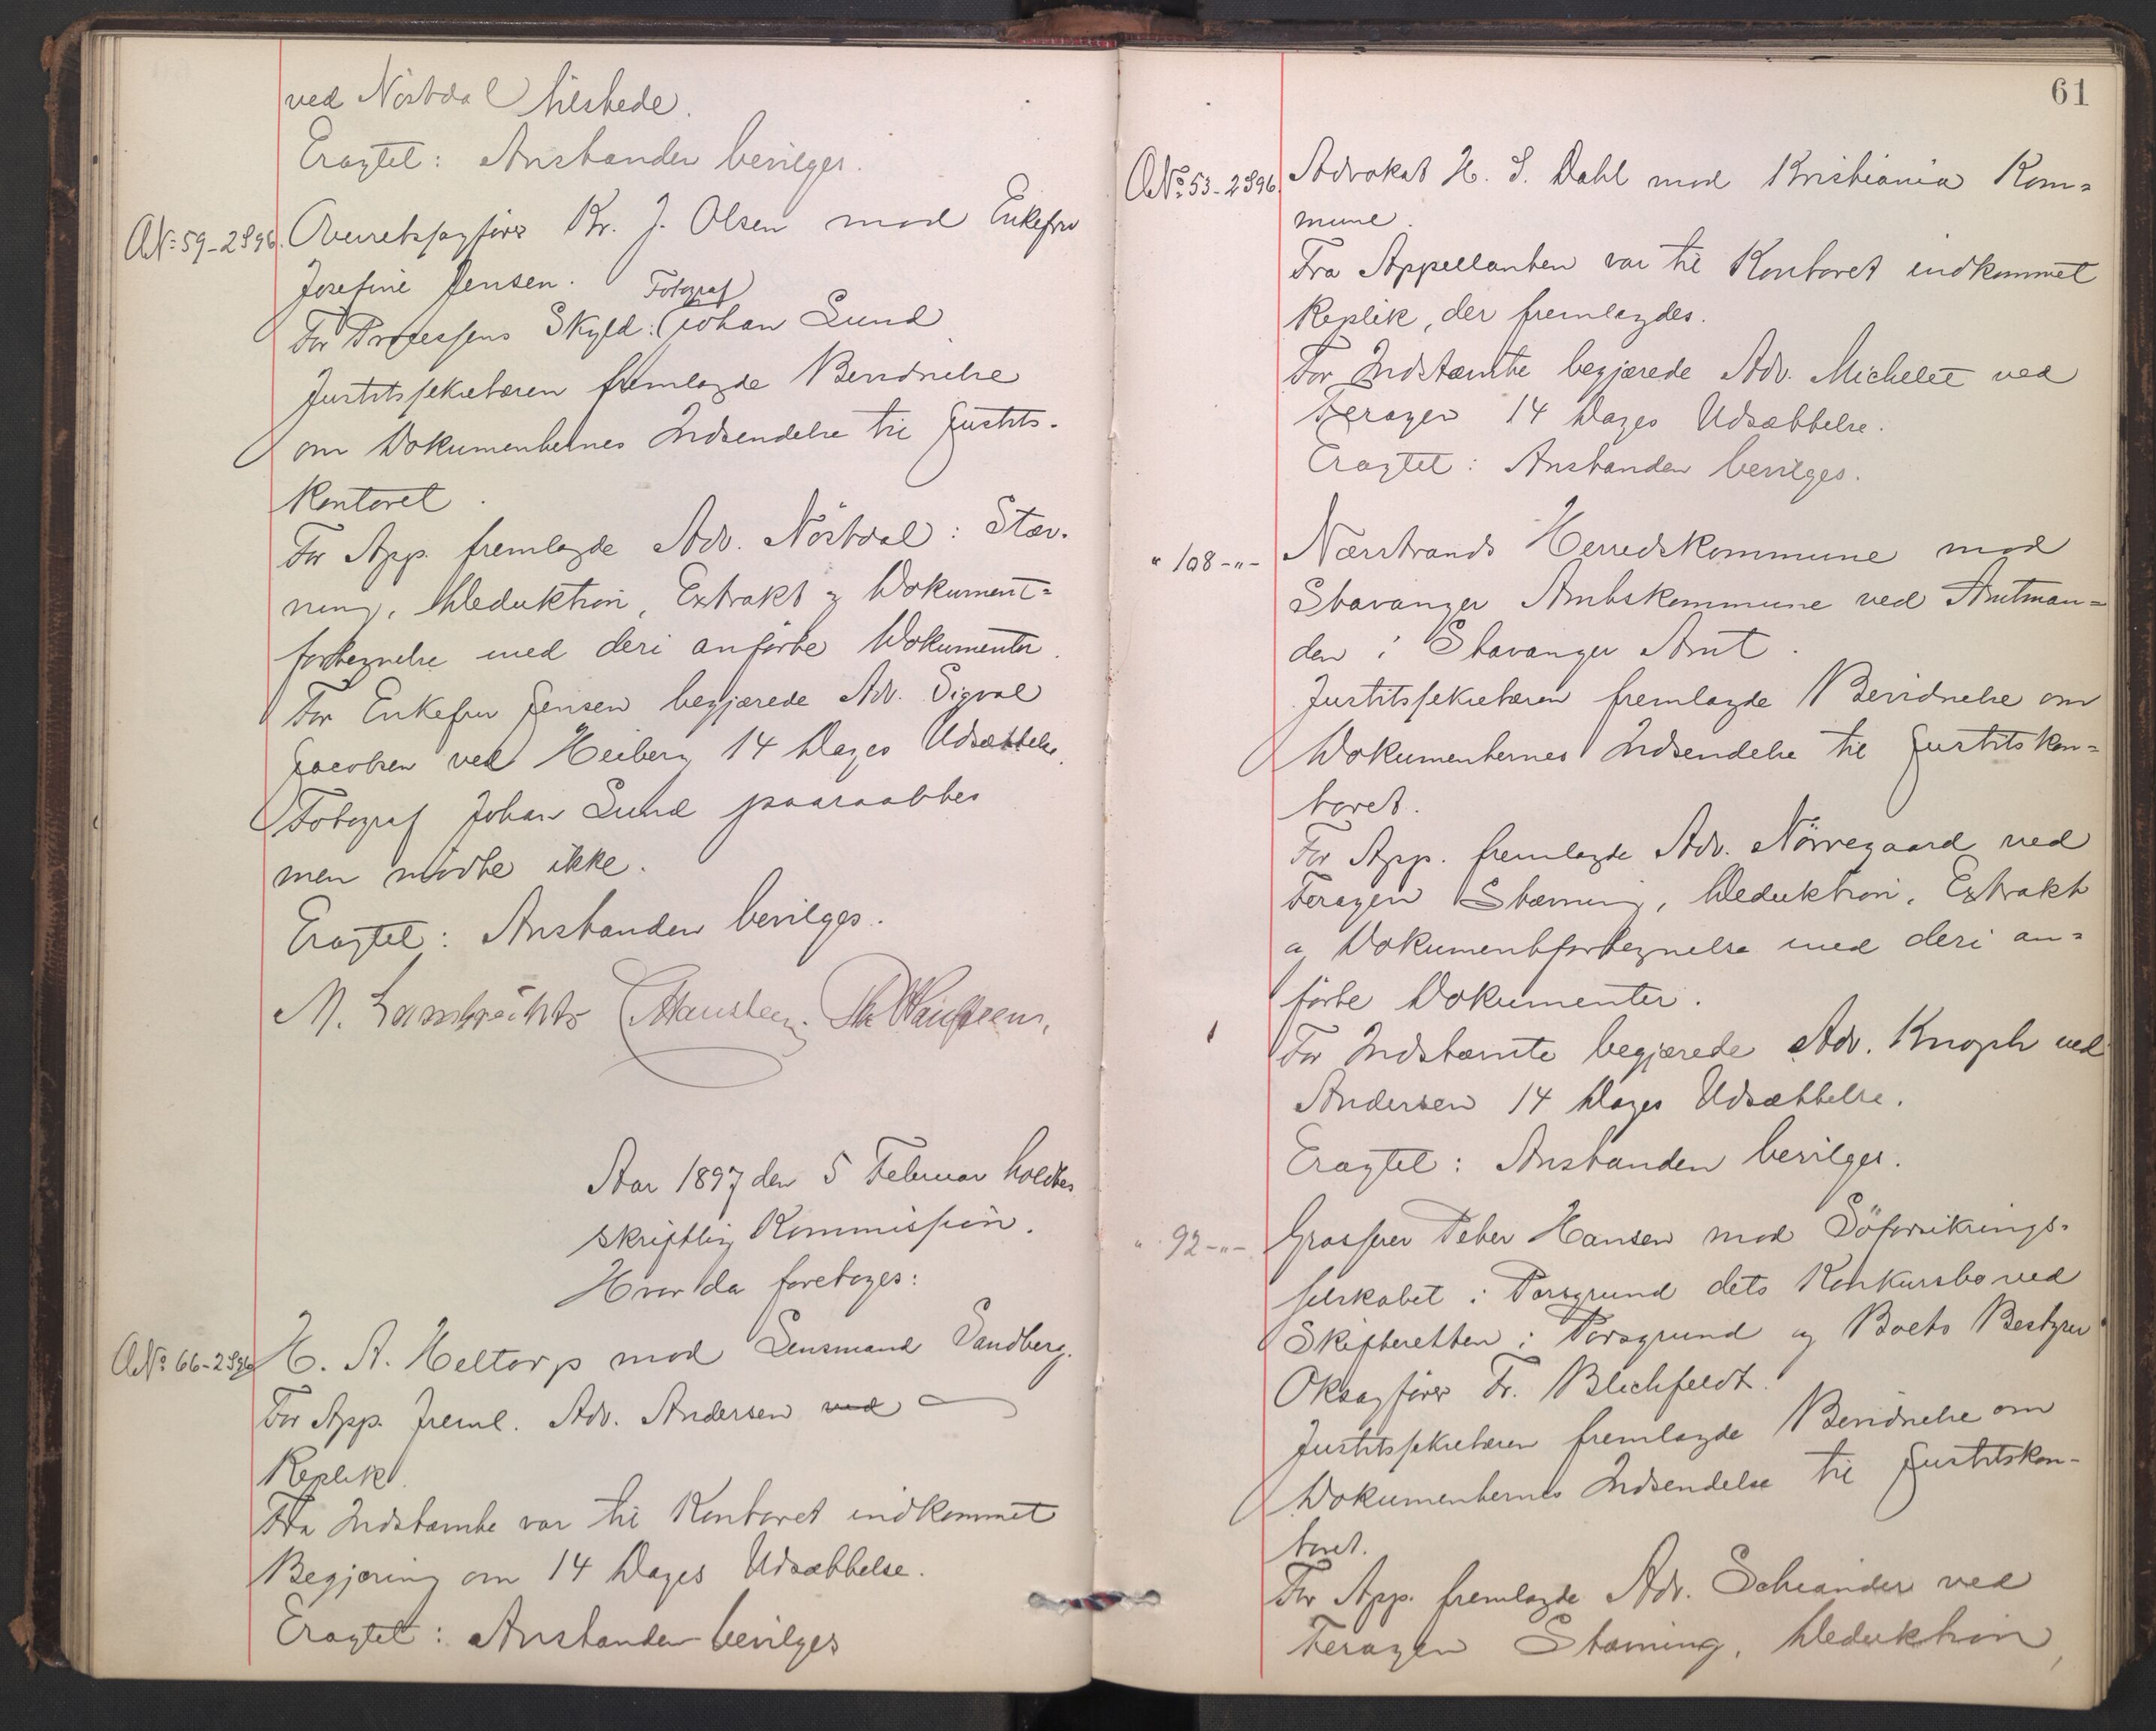 ved Nörbdal tilstede.
Eragtet: Anstanden bevilges.
A№ 59-2 S 96. Overretssagförer Kr. J. Olsen mod Enkefru
Josefine Jensen.
Fotograf
For Processens Skyld: Johan Lund
Justitssekretæren fremlagde Bevidnelse
om Dokumenternes Indsendelse til Justits-
kontoret.
For App. fremlagde Adv. Nörbdal: Stæv-
ning, Deduktion, Extrakt og Dokument-
fortegnelse med deri anförte Dokumenter.
For Enkefru Jensen begjærede Adv. Sigval
Jacobsen ved Heiberg 14 Dages Udsættelse.
Fotograf Johan Lund paaraabtes
men mödte ikke.
Eragtet: Anstanden bevilges.
M. Lambrechts Hansteen.
Aar 1897 den 5 Februar holdtes
skriftlig Kommission.
Hvor da foretoges:
A№ 66-2 S 96 H. A. Heltorp mod Lensmand Sandberg.
For App. freml. Adv. Andersen ved
Replik.
Fra Indstævnte var til Kontoret indkommet
Begjæring om 14 Dages Udsættelse.
Eragtet: Anstanden bevilges
61
A№ 53-2 S 96. Advokat H. S. Dahl mod Kristiania Kom-
mune.
Fra Appellanten var til Kontoret indkommet
Replik, der fremlagdes.
For Indstævnte begjærede Adv. Michelet ved
Feragen 14 Dages Udsættelse.
Eragtet: Anstanden bevilges.
" 108 -"- Nærstrands Herredskommune mod
Stavanger Amtskommune ved Amtman-
den i Stavanger Amt.
Justitssekretæren fremlagde Bevidnelse om
Dokumenternes Indsendelse til Justitskon-
toret.
For App. fremlagde Adv. Nörregaard ved
Feragen Stævning, Deduktion, Extrakt
og Dokumentfortegnelse med deri an-
förte Dokumenter.
For Indstævnte begjærede Adv. Knoph ved
Andersen 14 Dages Udsættelse.
Eragtet: Anstanden bevilges.
" 92 -"- Grosserer Peter Hansen mod Söforsikrings-
selskabet i Porsgrund dets Konkursbo ved
Skifteretten i Porsgrund og Boets Bestyrer
Oksagförer Fr. Blichfeldt.
Justitssekretæren fremlagde Bevidnelse om
Dokumenternes Indsendelse til Justitskon-
toret.
For App. fremlagde Adv. Schiander ved
Feragen Stævning, Deduktion,